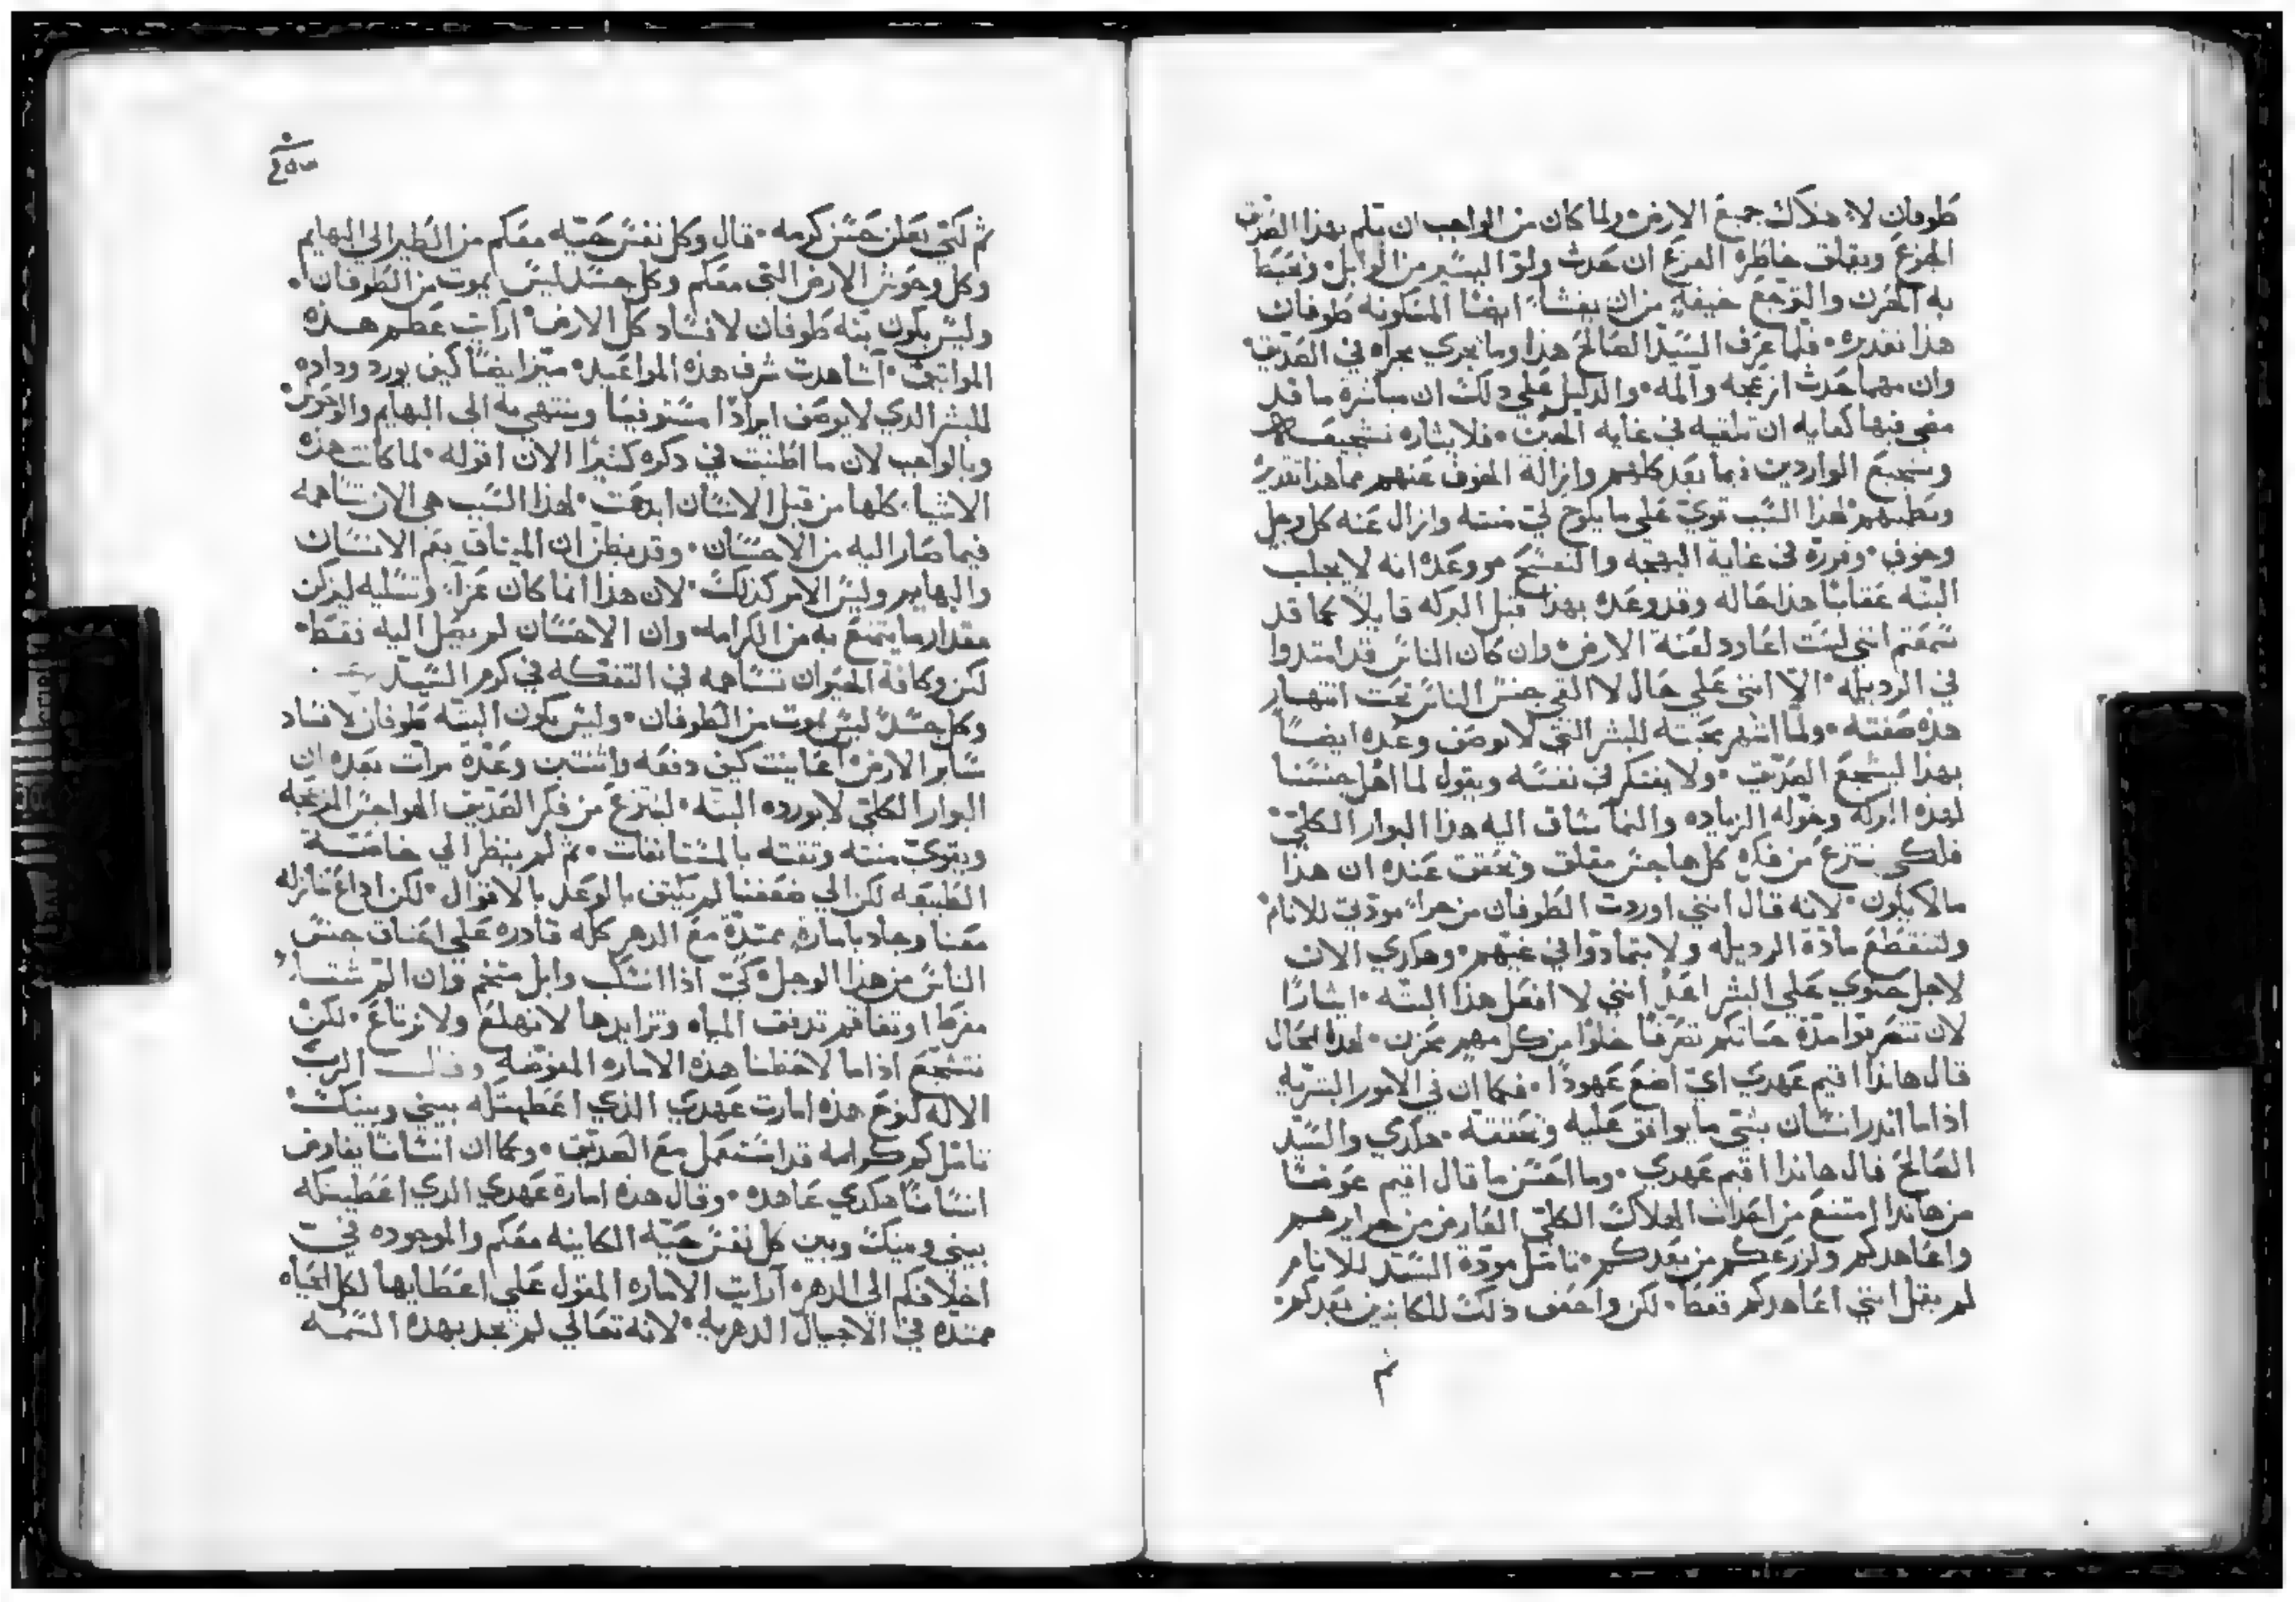 طوفان لاهلاك جميع الارض، ولما كان من الواجب ان يلم بهذا الصديق
الجزع ويقلق خاطره الفزع ان حدث ولو اليسير من الوابل، وتحيط
به الحزن والتوجع خيفة من ان يغشا ايضًا المسكونه طوفان
هذا تقديره، فلما عرف السيد الصالح هذا وما يجري مجراه في الصديق،
وان مهما حدث ازعجه وآلمه، والدليل علي دلك ان مباشرة ما قد
مضي فيها كفايه ان تلقيه في غايه الجبن، فلايثاره تشجيعه
وتشجيع الواردين فيما بعد كلهم وازالة الخوف عنهم مما هذا تقديره
وتطبيبهم، لهذا السبب قوي علي ما يلوح لي منته وازال عنه كل وجل
وخوف، وقرره في غاية البهجه والتفسح ووعده انه لا يجلب
البته عقابًا هذا حاله وقد وعده بهذا قبل البركه قايلاً كما قد
سمعتم انني لست اعاود لعنة الارض، وان كان الناس قد امتدوا
في الرديله، الا انني علي حال لا القي جنس الناس تحت انتهار
هذه صفته، ولما اشهر محبته للبشر التي لا توصف وعده ايضًا
بهذا ليشجع الصديق، ولا يفتكر في نفسه ويقول لما اهل جنسنا
لهذه البركه وخوله الزياده والنما ساق اليه هذا البوار الكلي،
فلكي ينتزع من فكره كل هاجس مقلق وتحقق عنده ان هذا
مالا يكون، لانه قال انني اوردت الطوفان من جراء مودتي للانام،
ولتنقطع مادة الرديله ولا يتمادوا في غيهم، وهكدي الان
لاجل حنوي علي البشر اعد انني لا افعل هذا البته، ايثارًا
لان تتصرفوا مدة حياتكم تصرفًا خلوًا من كل مهم محزن، لهذه الحال
قال هاندا اقيم عهدي اي اضع عهودًا، فكما ان في الامور البشريه
اذا ما اندر انسان بشي ما يوافق عليه وتحققه، هكدي والسيد
الصالح قال هاندا اقيم عهدي، وما احسن ما قال اقيم عوضًا
من هاندا امتنع من احداث الهلاك الكلي العارض من جرايرهم
واعاهدكم ولزرعكم من بعدكم، تامل مودة السيد للانام
لم يقل انني اعاهدكم فقط، لكن واحقق ذلك للكاينين بعدكم،
ثم
ثم لكي يعلن حسن كرمه، قال وكل نفس حيه معكم من الطير الي البهايم
وكل وحوش الارض التي معكم وكل جسد ليس يموت من الطوفان،
وليس يكون بته طوفان لافساد كل الارض، ارآيت عظم هذه
المواثيق، آشاهدت شرف هذه المواعيد، ميز ايضًا كيف يورد وداده
للبشر الدي لا يوصف ايرادًا مستوفيًا وينتهي به الي البهايم والوحوش،
وبالواجب لان ما اطنبت في دكره كثيرًا الان اقوله، لما كانت هذه
الاشياء كلها من قبل الانسان ابدعت، لهذا السبب هي الان تساهمه
فيما صار اليه من الاحسان، وقد يظن ان الميثاق يعم الانسان
والبهايم وليس الامر كذلك، لان هذا انما كان عزاءً وتسليه ليزكن
مقدار ما يتمتع به من الكرامه، وان الاحسان لم يصل اليه فقط،
لكن وكافة الحيوان تساهمه في التفكه في كرم السيد
وكل جسدٌ ليس يموت من الطوفان، وليس يكون البته طوفان لافساد
ساير الارض، آعاينت كيف دفعه واثنتين وعدة مرات يعده ان
البوار الكلي لا يورده البته، لينتزع من فكر الصديق الهواجس المزعجه
ويقوي منته وتقته بالمستانفات، ثم لم ينظر الي خاصة
الطبيعه لكن الي ضعفنا لم يكتف بالوعد بالاقوال، لكن اذاع تنازله
معنا وجاد باماره ممتدة مع الدهر كله قادره علي اعتاق جنس
الناس من هذا الوجل، كي اذا انسكب وابل متخم وان الم شتاء
مفرط او تفاقم تدفق المياه وتزايدها لا نهلع ولا نرتاع، لكن
نتشجع اذا ما لاحظنا هذه الاماره المعوضه وقال الرب
الاله لنوح هذه امارت عهدي الذي اعطيتكه بيني وبينك،
تامل كم كرامه قد استعمل مع الصديق، وكما ان انسانًا يفاوض
انسانًا هكدي عاهده، وقال هذه امارة عهدي الدي اعطيتكه
بيني وبينك وبين كل نفس حيه الكاينه معكم والموجوده في
اخلافكم الي الدهر، آرايت الاماره المقول علي اعطايها لكل الحياه
ممتده في الاجيال الدهريه، لانه تعالي لم يجد بهذه السمه